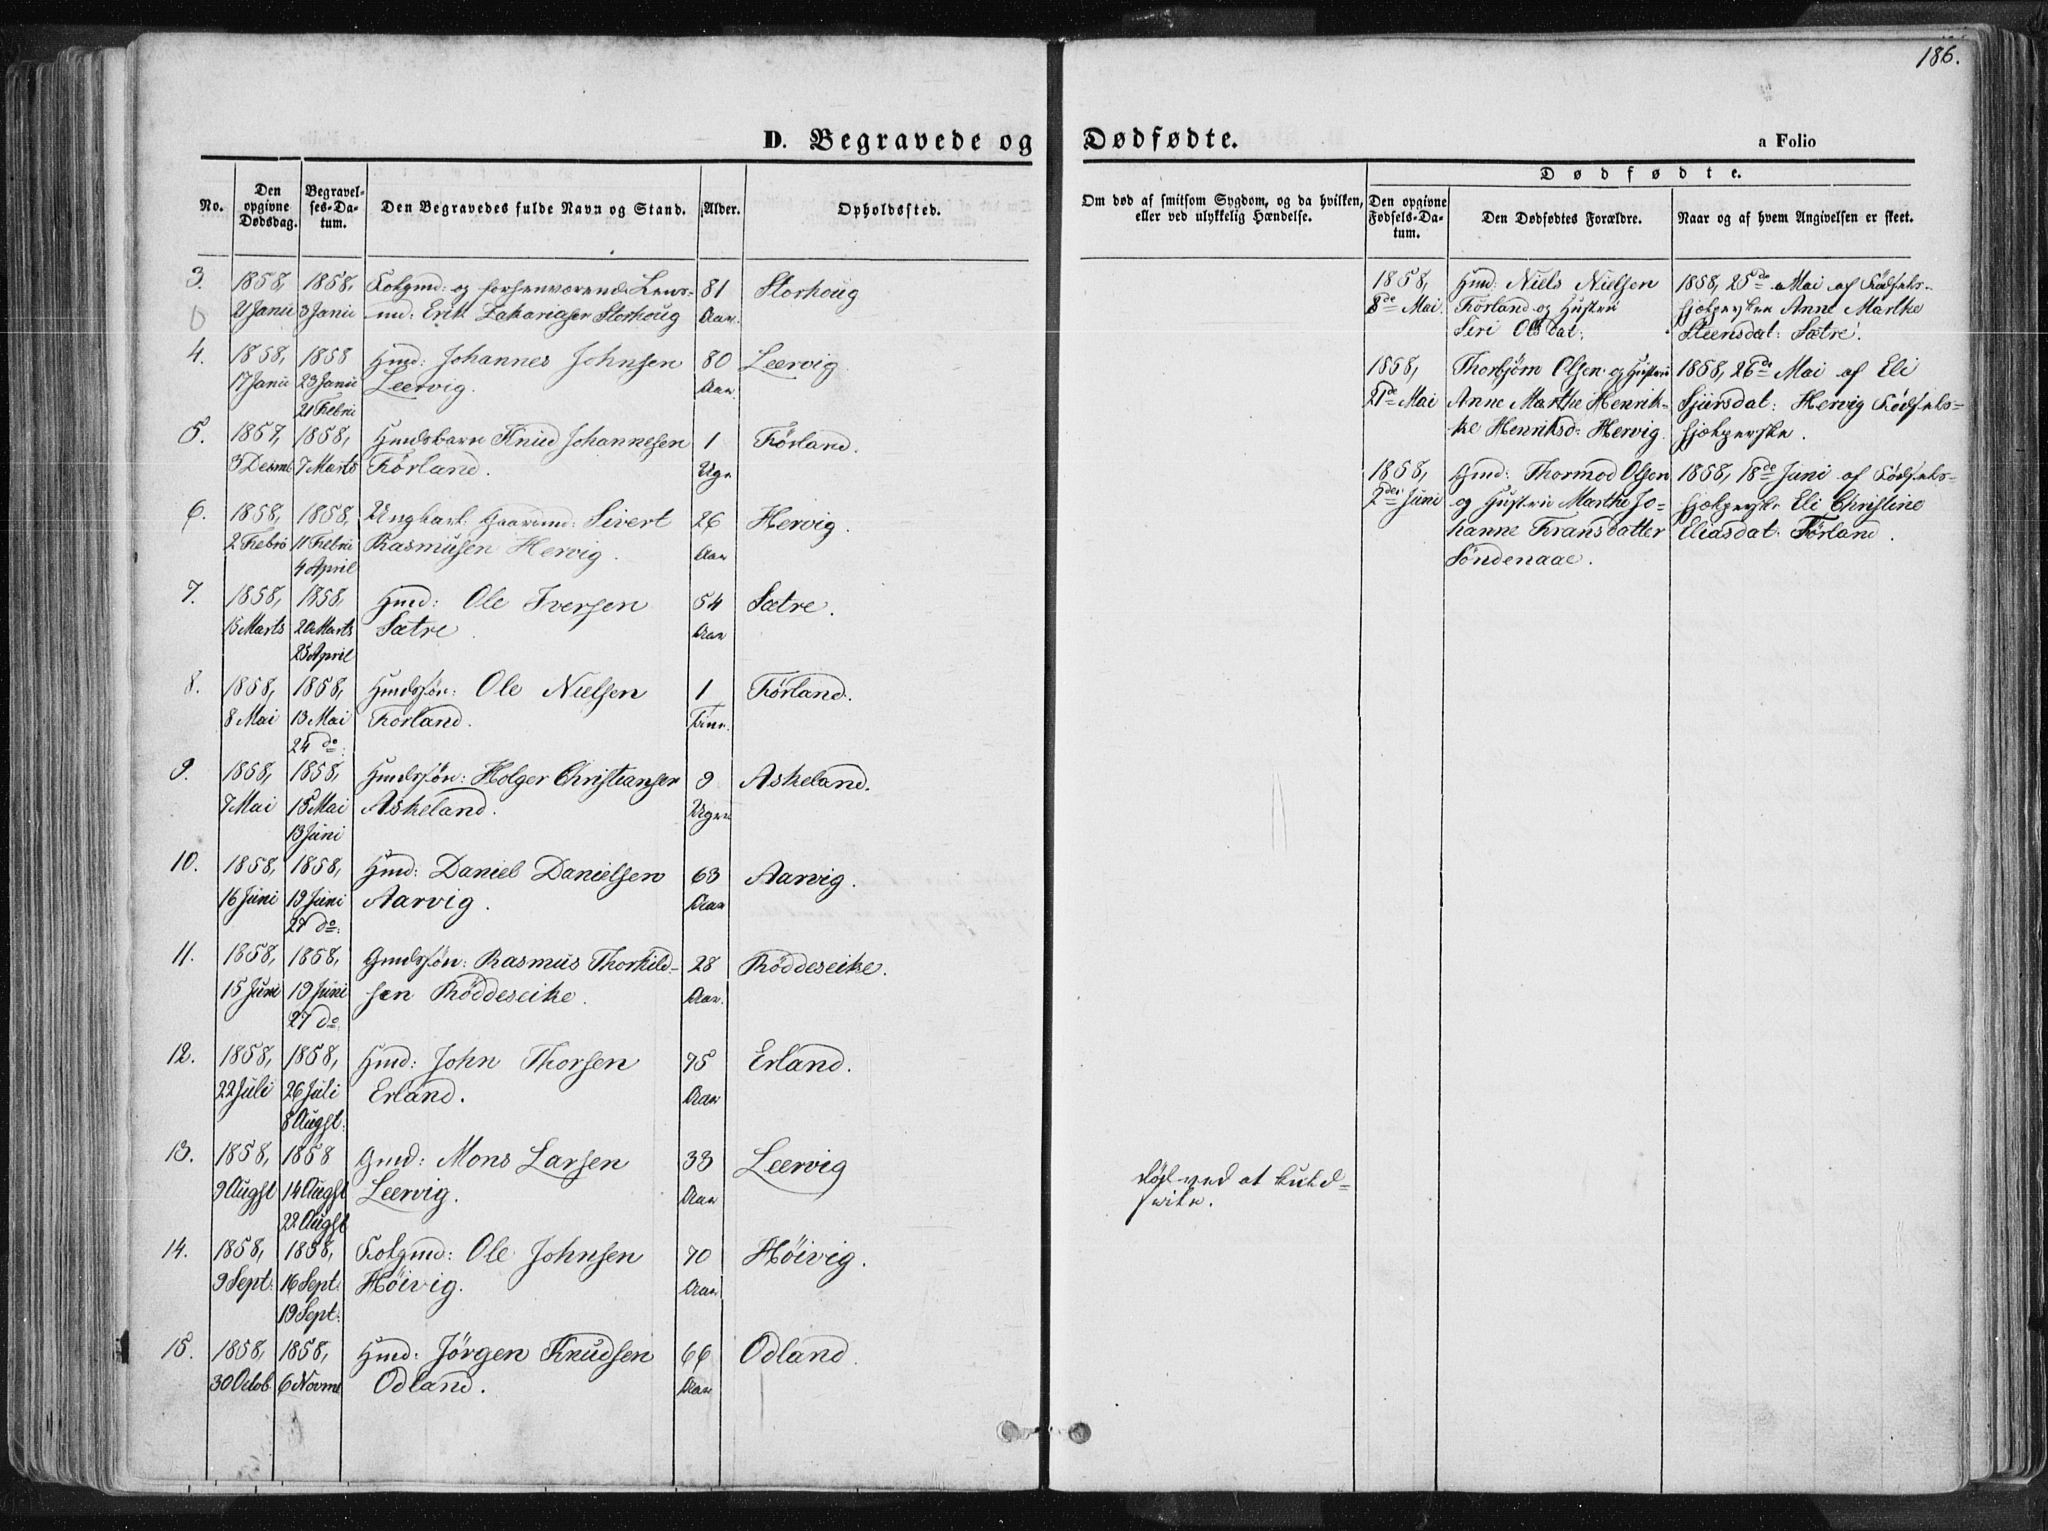 186.
D. Begravede og
Dødfødte.
a Folio
No.
Den opgivne Dødsdag.
Begravelses-Datum.
Den Begravedes fulde Navn og Stand.
Alder.
Opholdssted.
3. 1858, 1858, Folgmd: og forhenværende Lens- 81 Storhoug
2 Janu 3 Janu md: Erik Zakariasen Storhoug Aar.
4. 1858, 1858 Gmd: Johannes Johnsen 80 Leervig.
17 Janu 23 Janu Leervig. Aar
21 Febru
5. 1857, 1858, Gmdsbarn Knud Johannesen 1 Førland.
3 Decmb 7 Marts Førland. Uge
6. 1858, 1858, Ungkarl Gaardmd: Sivert 26 Hervig.
2 Febru 11 Febru Rasmusen Hervig. Aar
4 April
7. 1858, 1858 Hmd: Ole Iversen 54 Sætre.
15 Marts 20 Marts Sætre Aar
25 April
8. 1858, 1858, Hmdssøn: Ole Nielsen 1 Førland.
8 Mai 13 Mai Førland. Time
24 do:
9. 1858, 1858, Gmdssøn: Holger Christiansen 9 Askeland.
7 Mai 15 Mai Askeland. Uger
13 Juni
10. 1858, 1858, Hmd: Daniel Danielsen 63 Aarvig.
16 Juni 19 Juni Aarvig. Aar
27 do:
11. 1858, 1858, Gmdssøn: Rasmus Thorkild- 28 Røddeseike.
15 Juni 19 Juni sen Røddeseike. Aar
27 do:
12. 1858, 1858, Hmd: John Thorsen 75 Erland.
22 Juli 26 Juli Erland. Aar
8 Augst:
13. 1858, 1858 Gmd: Mons Larsen 33 Leervig
9 Augst 14 Augst Leervig. Aar
22 Augst
14. 1858, 1858, Folgmd: Ole Johnsen 70 Høivig.
9 Sept: 16 Sept: Høivig. Aar
19 Sept:
15. 1858, 1858, Hmd: Jörgen Knudsen 66 Odland.
30 Octob 6 Novmb Odland. Aar
Om død af smitsom Sygdom, og da hvilken,
eller ved ulykkelig Hændelse.
ved at kuld-
seile.
Dødfødte.
Den opgivne Fødsels-Datum.
Den Dødfødtes Forældre.
Naar og af hvem Angivelsen er skeet.
1858, Hmd: Niels Nielsen 1858, 25de Mai af Fødsels-
8de Mai. Førland og Hustru hjælperske Anne Marthe
Siri Olsdat: Steensdat: Sætre.
1858, Thorbjørn Olsen og Hustru 1858, 26de Mai af Eli
21de Mai Anne Marthe Henrik- Sjursdat: Hervig Fødsels-
ke Henriksd: Hervig. hjælperske.
1858, Hmd: Thormod Olsen 1858, 18de Juni af Fødsels-
2den Juni og Hustru Marthe Jo- hjælperske Eli Christine
hanne Fransdatter Eliasdat: Førland.
Søndenaae.